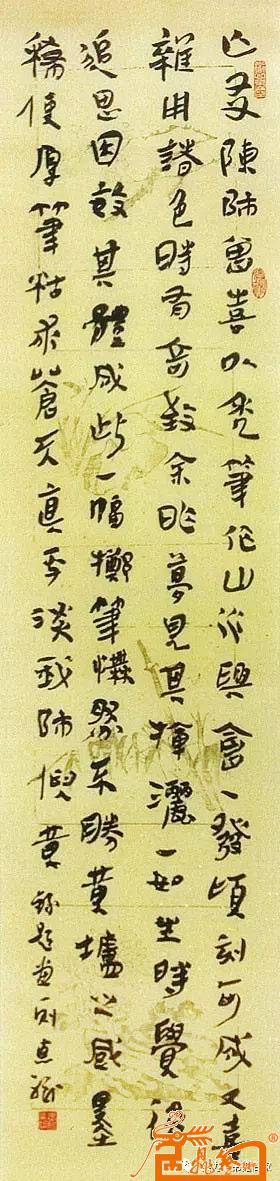 亡友陳師曾喜以禿筆作山水與會一發頃刻可成又喜
雜用諸色時有奇致余昨夢見其揮灑一如生時覺後
追思因放其體成此一幅擲筆憮然不勝黃壚之感墨
痛使厚筆枯求蒼天真平淡我師惧黃
錄題畫一則